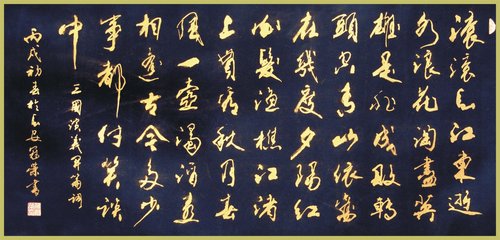 滚滚长江東逝
水浪花淘盡英
雄是非成敗轉
頭空青山依舊
在幾度夕陽紅
白髮漁樵江渚
上慣看秋月春
風一壺濁酒喜
相逢古今多少
事都付笑談
中
三國演義開篇詞
丙戌初春於长安冠榮書